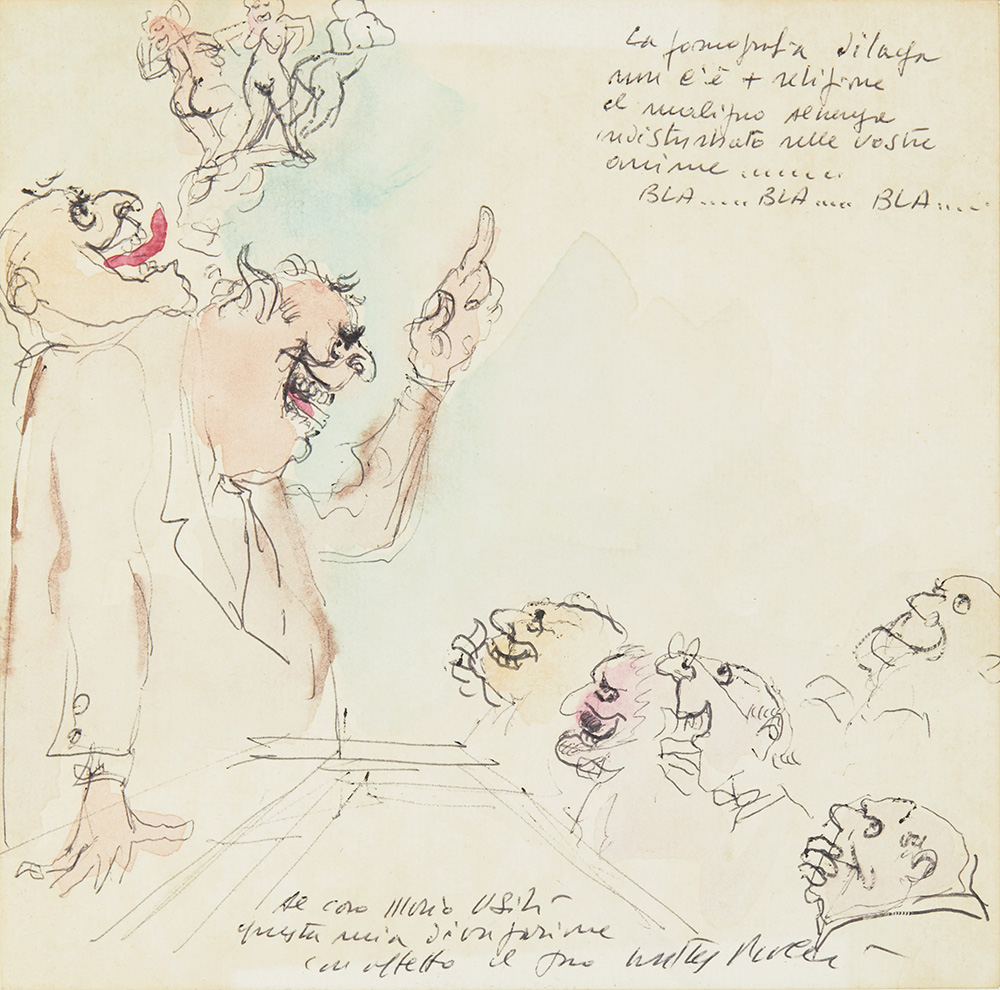 La pornografia dilaga
non c'è + religione
il maligno alberga
indisturbato nelle vostre
anime .......
BLA..... BLA.... BLA.....
al caro Mario
questa mia divagazione
con affetto il suo